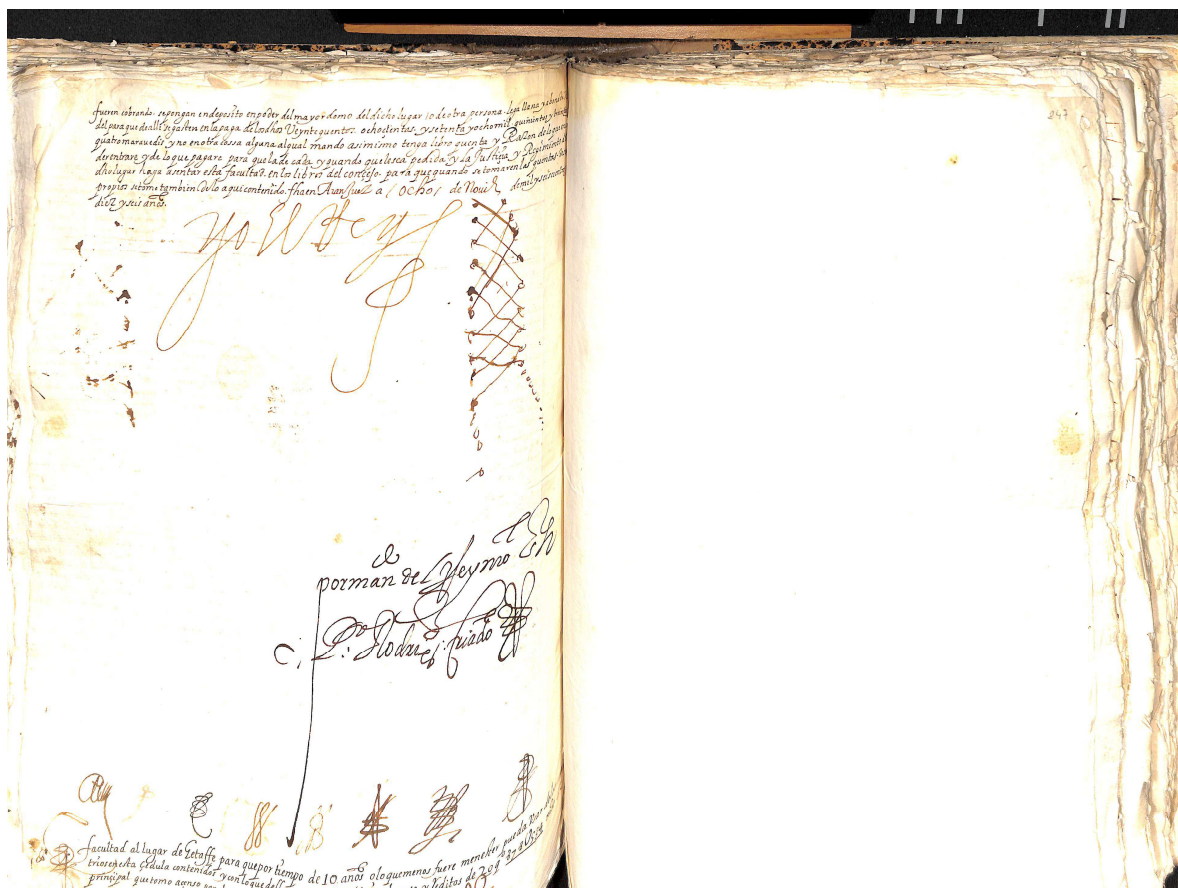 fueren cobrando. se pongan en deposito en poder del mayordomo del dicho lugar, o de otra persona. lega llana y abona
del para que de alli se gasten en la paga de los dhos Veynte quentos. ochocientas. y setenta y ocho mil quinientos y treinta
quatro maravedis y no en otra cossa alguna al qual mando asimismo tenga libro quenta y Raçon de lo que
de rentare y de lo que pagare para que la de cada y quando que le sea pedida y la Justicia y Regimiento
dicho lugar haga asentar esta facultad. en los libros del concejo. para que quando se tomaren las quentas
propios se tome tambien de lo aqui contenido. fha en Aranjuez a ocho de de mil y seiscientos
diez y seis años.
yo El Rey
por man do del Rey nro
Po Rodri criado
facultad al lugar de Getaffe para que por tiempo de 10 años o lo que menos fuere menester pueda
en esta cedula contenidos y con lo que
principal que tomo a censo
247